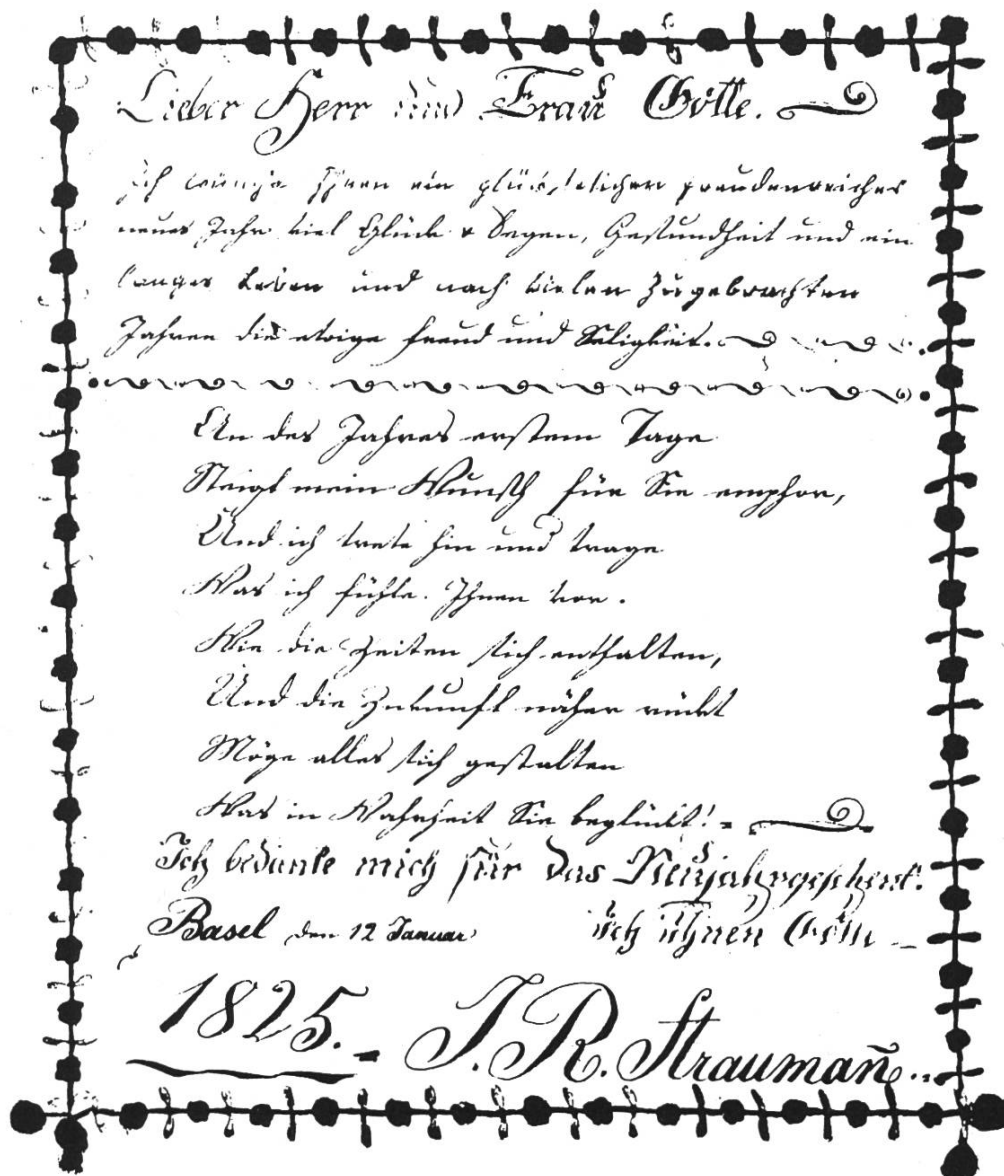 Lieber Herr und Frau Gotte.
Ich wünsche Ihnen ein glückseliges freudenreiches
neues Jahr viel Glück & Segen, Gesundheit und ein
langes Leben und nach vielen zugebrachten
Jahren die ewige Freud und Seligkeit.
An des Jahres erstem Tage
Steigt mein Wunsch für Sie emphor,
Und ich trete hin und trage
Was ich fühle Ihnen vor.
Wie die Zeiten sich enthalten,
Und die Zukunft näher rückt
Möge alles sich gestalten
Was in Wahrheit Sie beglückt!
Ich bedanke mich für das Neujahrgeschenk.
Basel den 12 Januar
1825. J. R. Straumañ